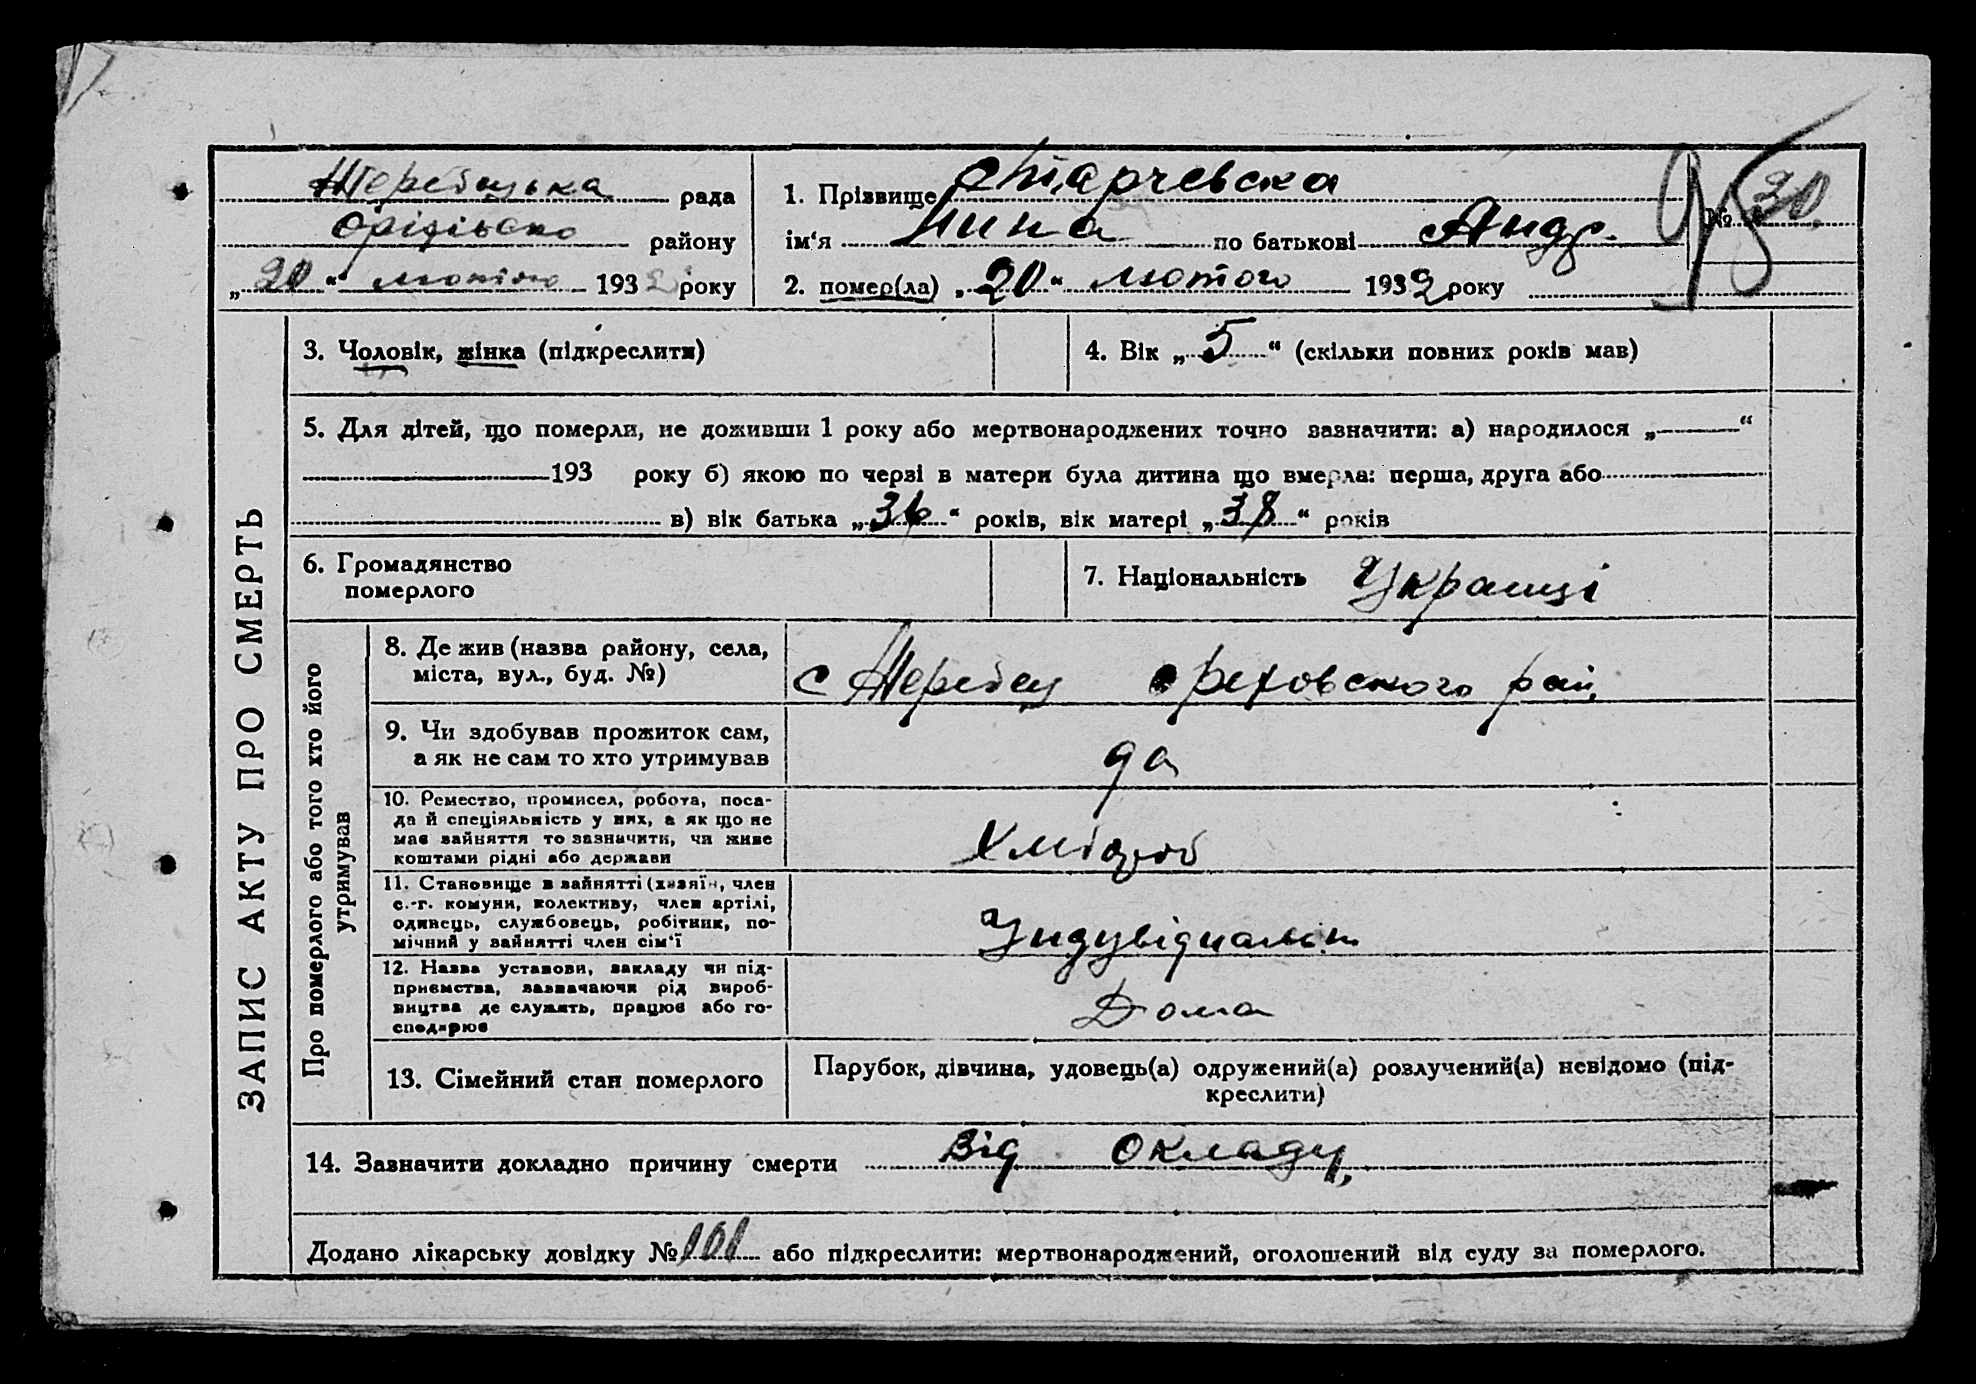 Жеребецька рада
Оріхівсько району
„20“ лютого 1932 року
1. Прізвище Старчевська
ім‘я Нина по батькові Андр.
№ 30
95
2. помер(ла) „20“ лютого 1932 року
3. Чоловік, жінка (підкреслити)
4. Вік „5“ (скільки повних років мав)
5. Для дітей, що померли, не доживши 1 року або мертвонароджених точно зазначити: а) народилося „—“
193 року б) якою по черзі в матери була дитина що вмерла: перша, друга або
в) вік батька „36“ років, вік матері „38“ років
6. Громадянство
померлого
7. Національність Украинці
ЗАПИС АКТУ ПРО СМЕРТЬ
Про померлого або того хто його
утримував
8. Де жив (назва району, села,
міста, вул., буд. №)
с Жеребец Ореховского рай.
9. Чи здобував прожиток сам,
а як не сам то хто утримував
да
10. Ремество, промисел, робота, поса-
да й спеціяльність у них, а як що не
має зайняття то зазначити, чи живе
коштами рідні або держави
Хлібороб
11. Становище в зайнятті (хазяїн, член
с.-г. комуни, колективу, член артілі,
одинець, службовець, робітник, по-
мічний у зайнятті член сім‘ї
12. Назва установи, закладу чи під-
приємства, зазначаючи рід вироб-
ництва де служить, працює або го-
сподарює
Дома
13. Сімейний стан померлого
Парубок, дівчина, удовець(а) одружений(а) розлучений(а) невідомо (під-
креслити)
14. Зазначити докладно причину смерти Від Окладу,
Додано лікарську довідку № 101 або підкреслити: мертвонароджений, оголошений від суду за померлого.